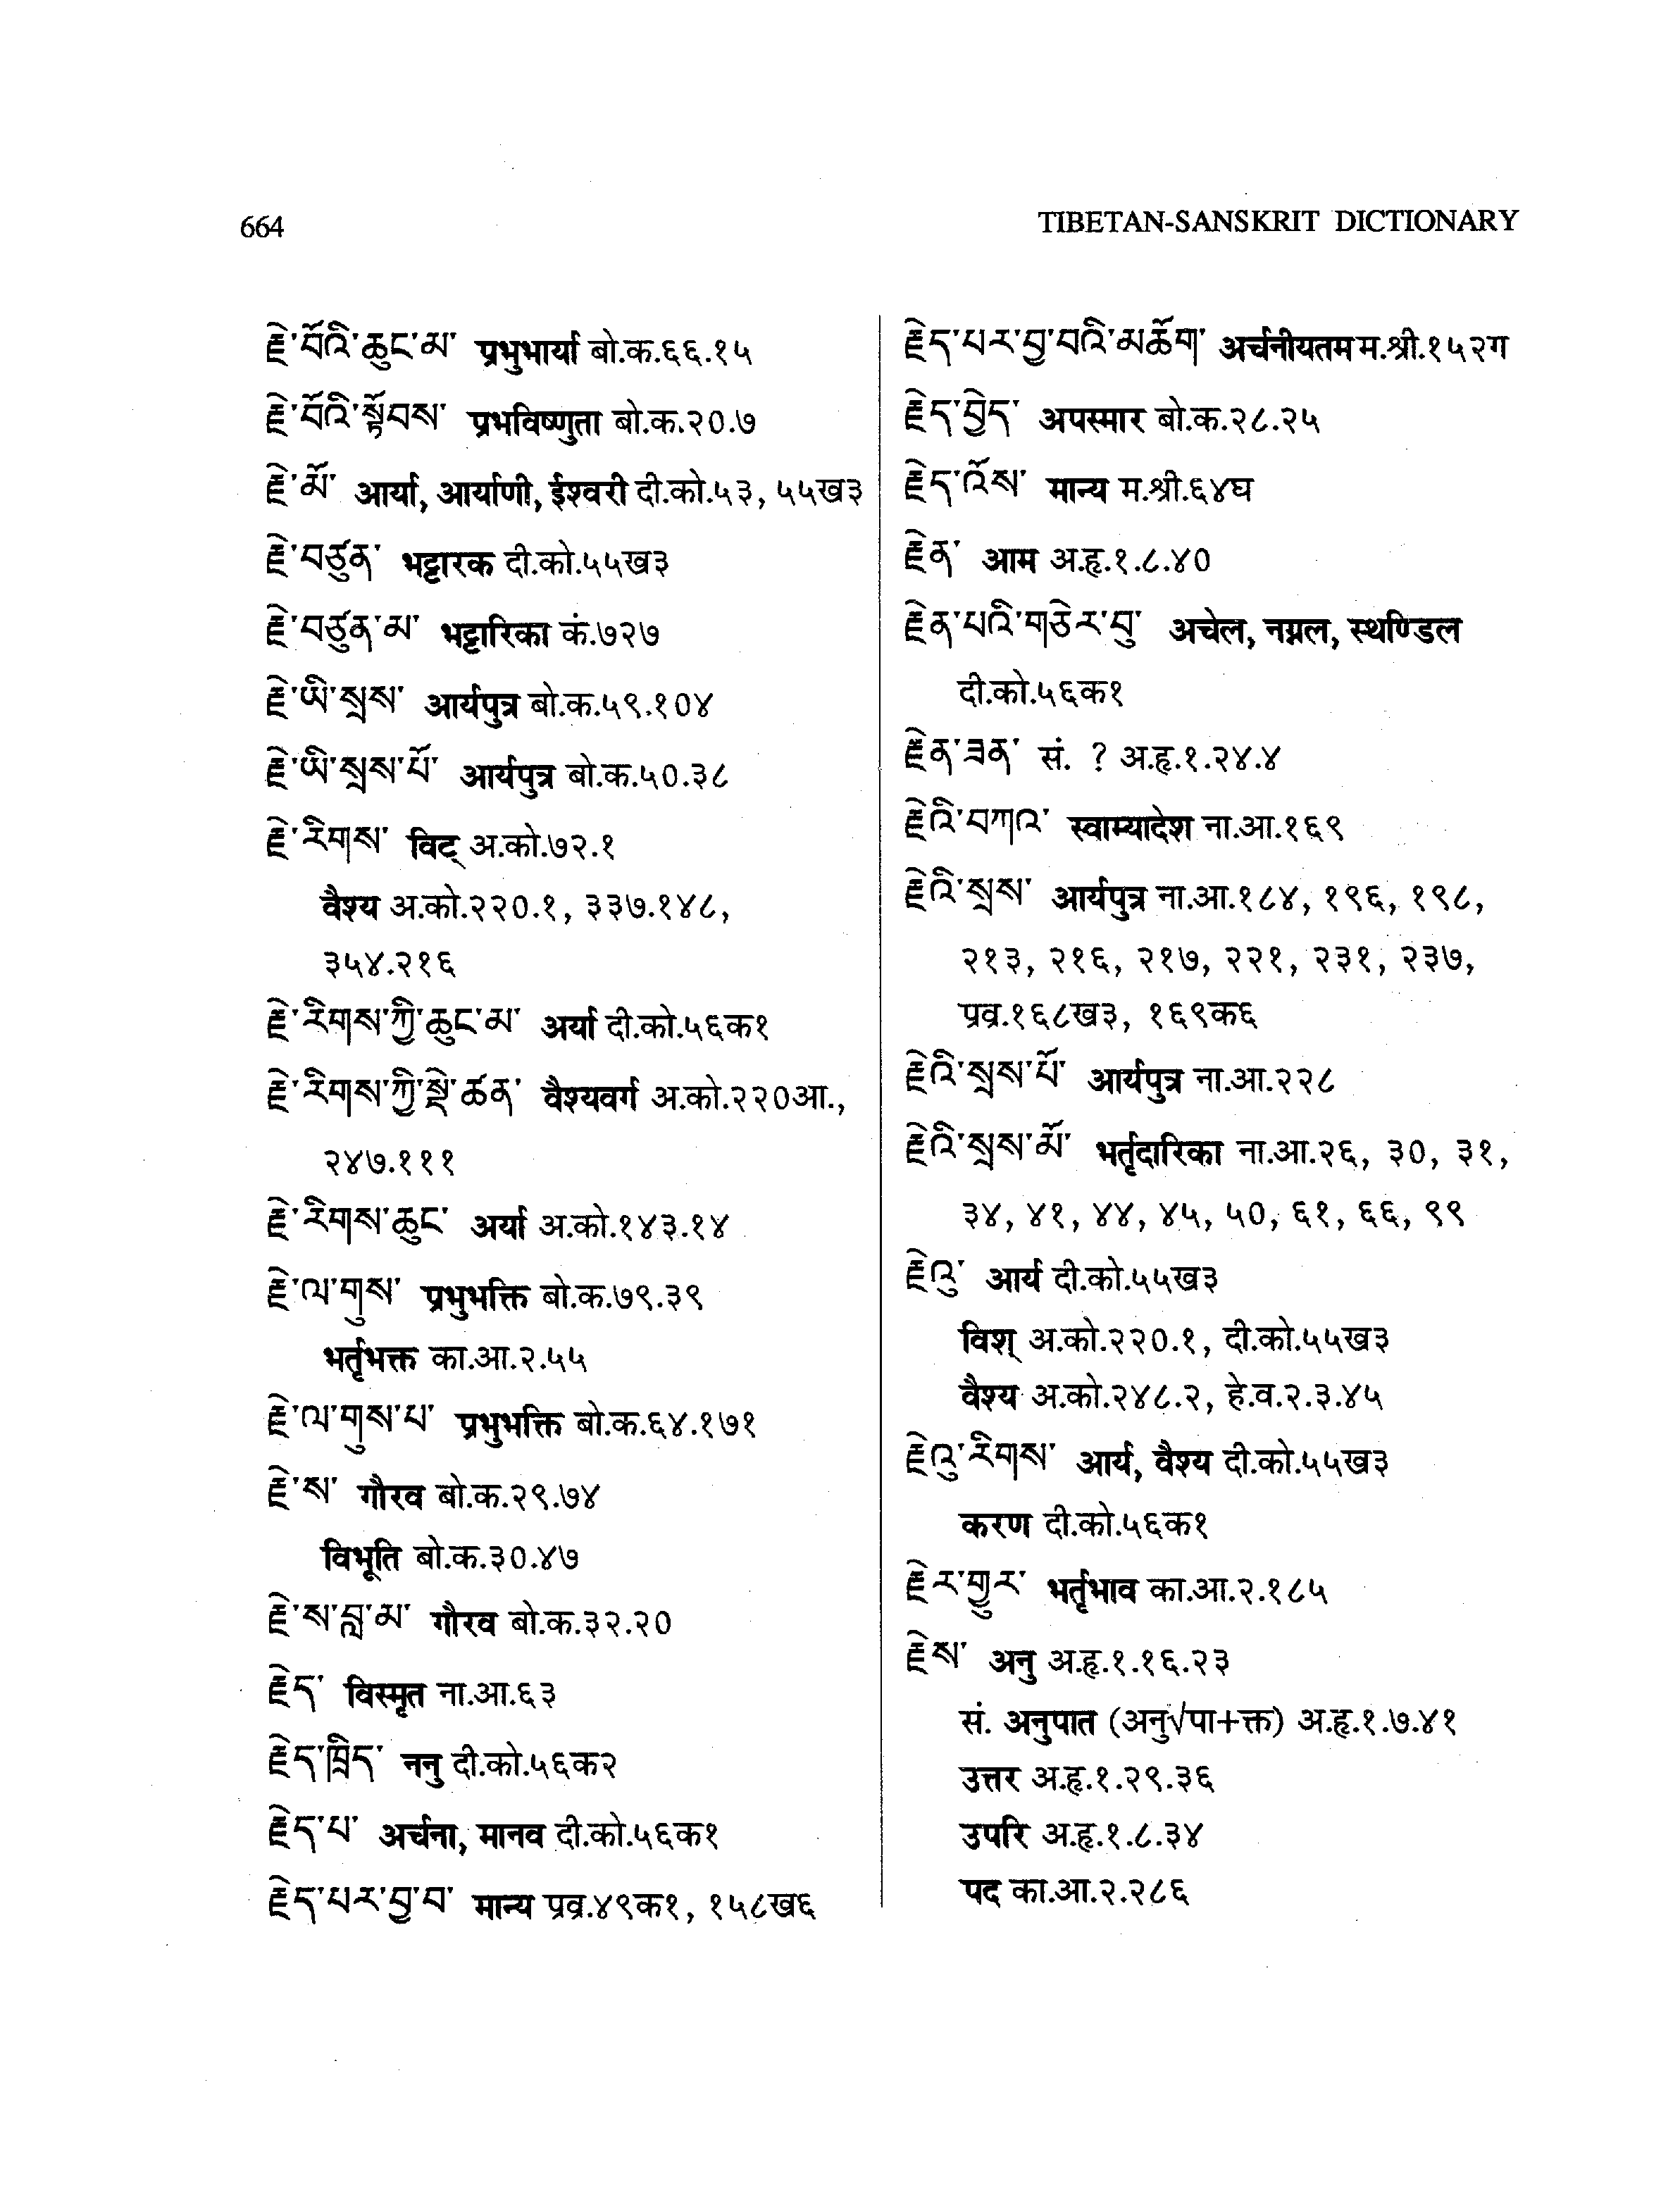 664
TIBETAN-SANSKRIT DICTIONARY
རྗེ་བོའི་ཆུང་མ་ प्रभुभार्या बो.क.६६.१५
རྗེ་བོའི་སྟོབས་ प्रभविष्णुता बो.क.२०.७
རྗེ་མོ་ आर्या, आर्याणी, ईश्वरी दी.को.५३, ५५ख३
རྗེ་བཙུན་ भट्टारक दी.को.५५ख३
རྗེ་བཙུན་མ་ भट्टारिका कं.७२७
རྗེ་ཡི་སྲས་ आर्यपुत्र बो.क.५९.१०४
རྗེ་ཡི་སྲས་པོ་ आर्यपुत्र बो.क.५०.३८
རྗེ་རིགས་ विट् अ.को.७२.१
वैश्य अ.को.२२०.१, ३३७.१४८,
३५४.२१६
རྗེ་རིགས་ཀྱི་ཆུང་མ་ अर्या दी.को.५६क१
རྗེ་རིགས་ཀྱི་སྡེ་ཚན་ वैश्यवर्ग अ.को.२२०आ.,
२४७.१११
རྗེ་རིགས་ཆུང་ अर्या अ.को.१४३.१४
རྗེ་ལ་གུས་ प्रभुभक्ति बो.क.७९.३९
भर्तृभक्त का.आ.२.५५
རྗེ་ལ་གུས་པ་ प्रभुभक्ति बो.क.६४.१७१
རྗེ་ས་ गौरव बो.क.२९.७४
विभूति बो.क.३०.४७
རྗེ་ས་བླ་མ་ गौरव बो.क.३२.२०
རྗེད་ विस्मृत ना.आ.६३
རྗེད་ཁྲིད་ ननु दी.को.५६क२
རྗེད་པ་ अर्चना, मानव दी.को.५६क१
རྗེད་པར་བྱ་བ་ मान्य प्रव्र.४९क१, १५८ख६
རྗེད་པར་བྱ་བའི་མཆོག་ अर्चनीयतम म.श्री.१५२ग
རྗེད་བྱེད་ अपस्मार बो.क.२८.२५
རྗེད་འོས་ मान्य म.श्री.६४घ
རྗེན་ आम अ.हृ.१.८.४०
རྗེན་པའི་གཅེར་བུ་ अचेल, नग्नल, स्थण्डिल
दी.को.५६क१
རྗེན་ཟན་ सं. ? अ.हृ.१.२४.४
རྗེའི་བཀའ་ स्वाम्यादेश ना.आ.१६९
རྗེའི་སྲས་ आर्यपुत्र ना.आ.१८४, १९६, १९८,
२१३, २१६, २१७, २२१, २३१, २३७,
प्रव्र.१६८ख३, १६९क६
རྗེའི་སྲས་པོ་ आर्यपुत्र ना.आ.२२८
རྗེའི་སྲས་མོ་ भर्तृदारिका ना.आ.२६, ३०, ३१,
३४, ४१, ४४, ४५, ५०, ६१, ६६, ९९
རྗེའུ་ आर्य दी.को.५५ख३
विश् अ.को.२२०.१, दी.को.५५ख३
वैश्य अ.को.२४८.२, हे.व.२.३.४५
རྗེའུ་རིགས་ आर्य, वैश्य दी.को.५५ख३
करण दी.को.५६क१
རྗེར་གྱུར་ भर्तृभाव का.आ.२.१८५
རྗེས་ अनु अ.हृ.१.१६.२३
सं. अनुपात (अनु√पा+क्त) अ.हृ.१.७.४१
उत्तर अ.हृ.१.२९.३६
उपरि अ.हृ.१.८.३४
पद का.आ.२.२८६